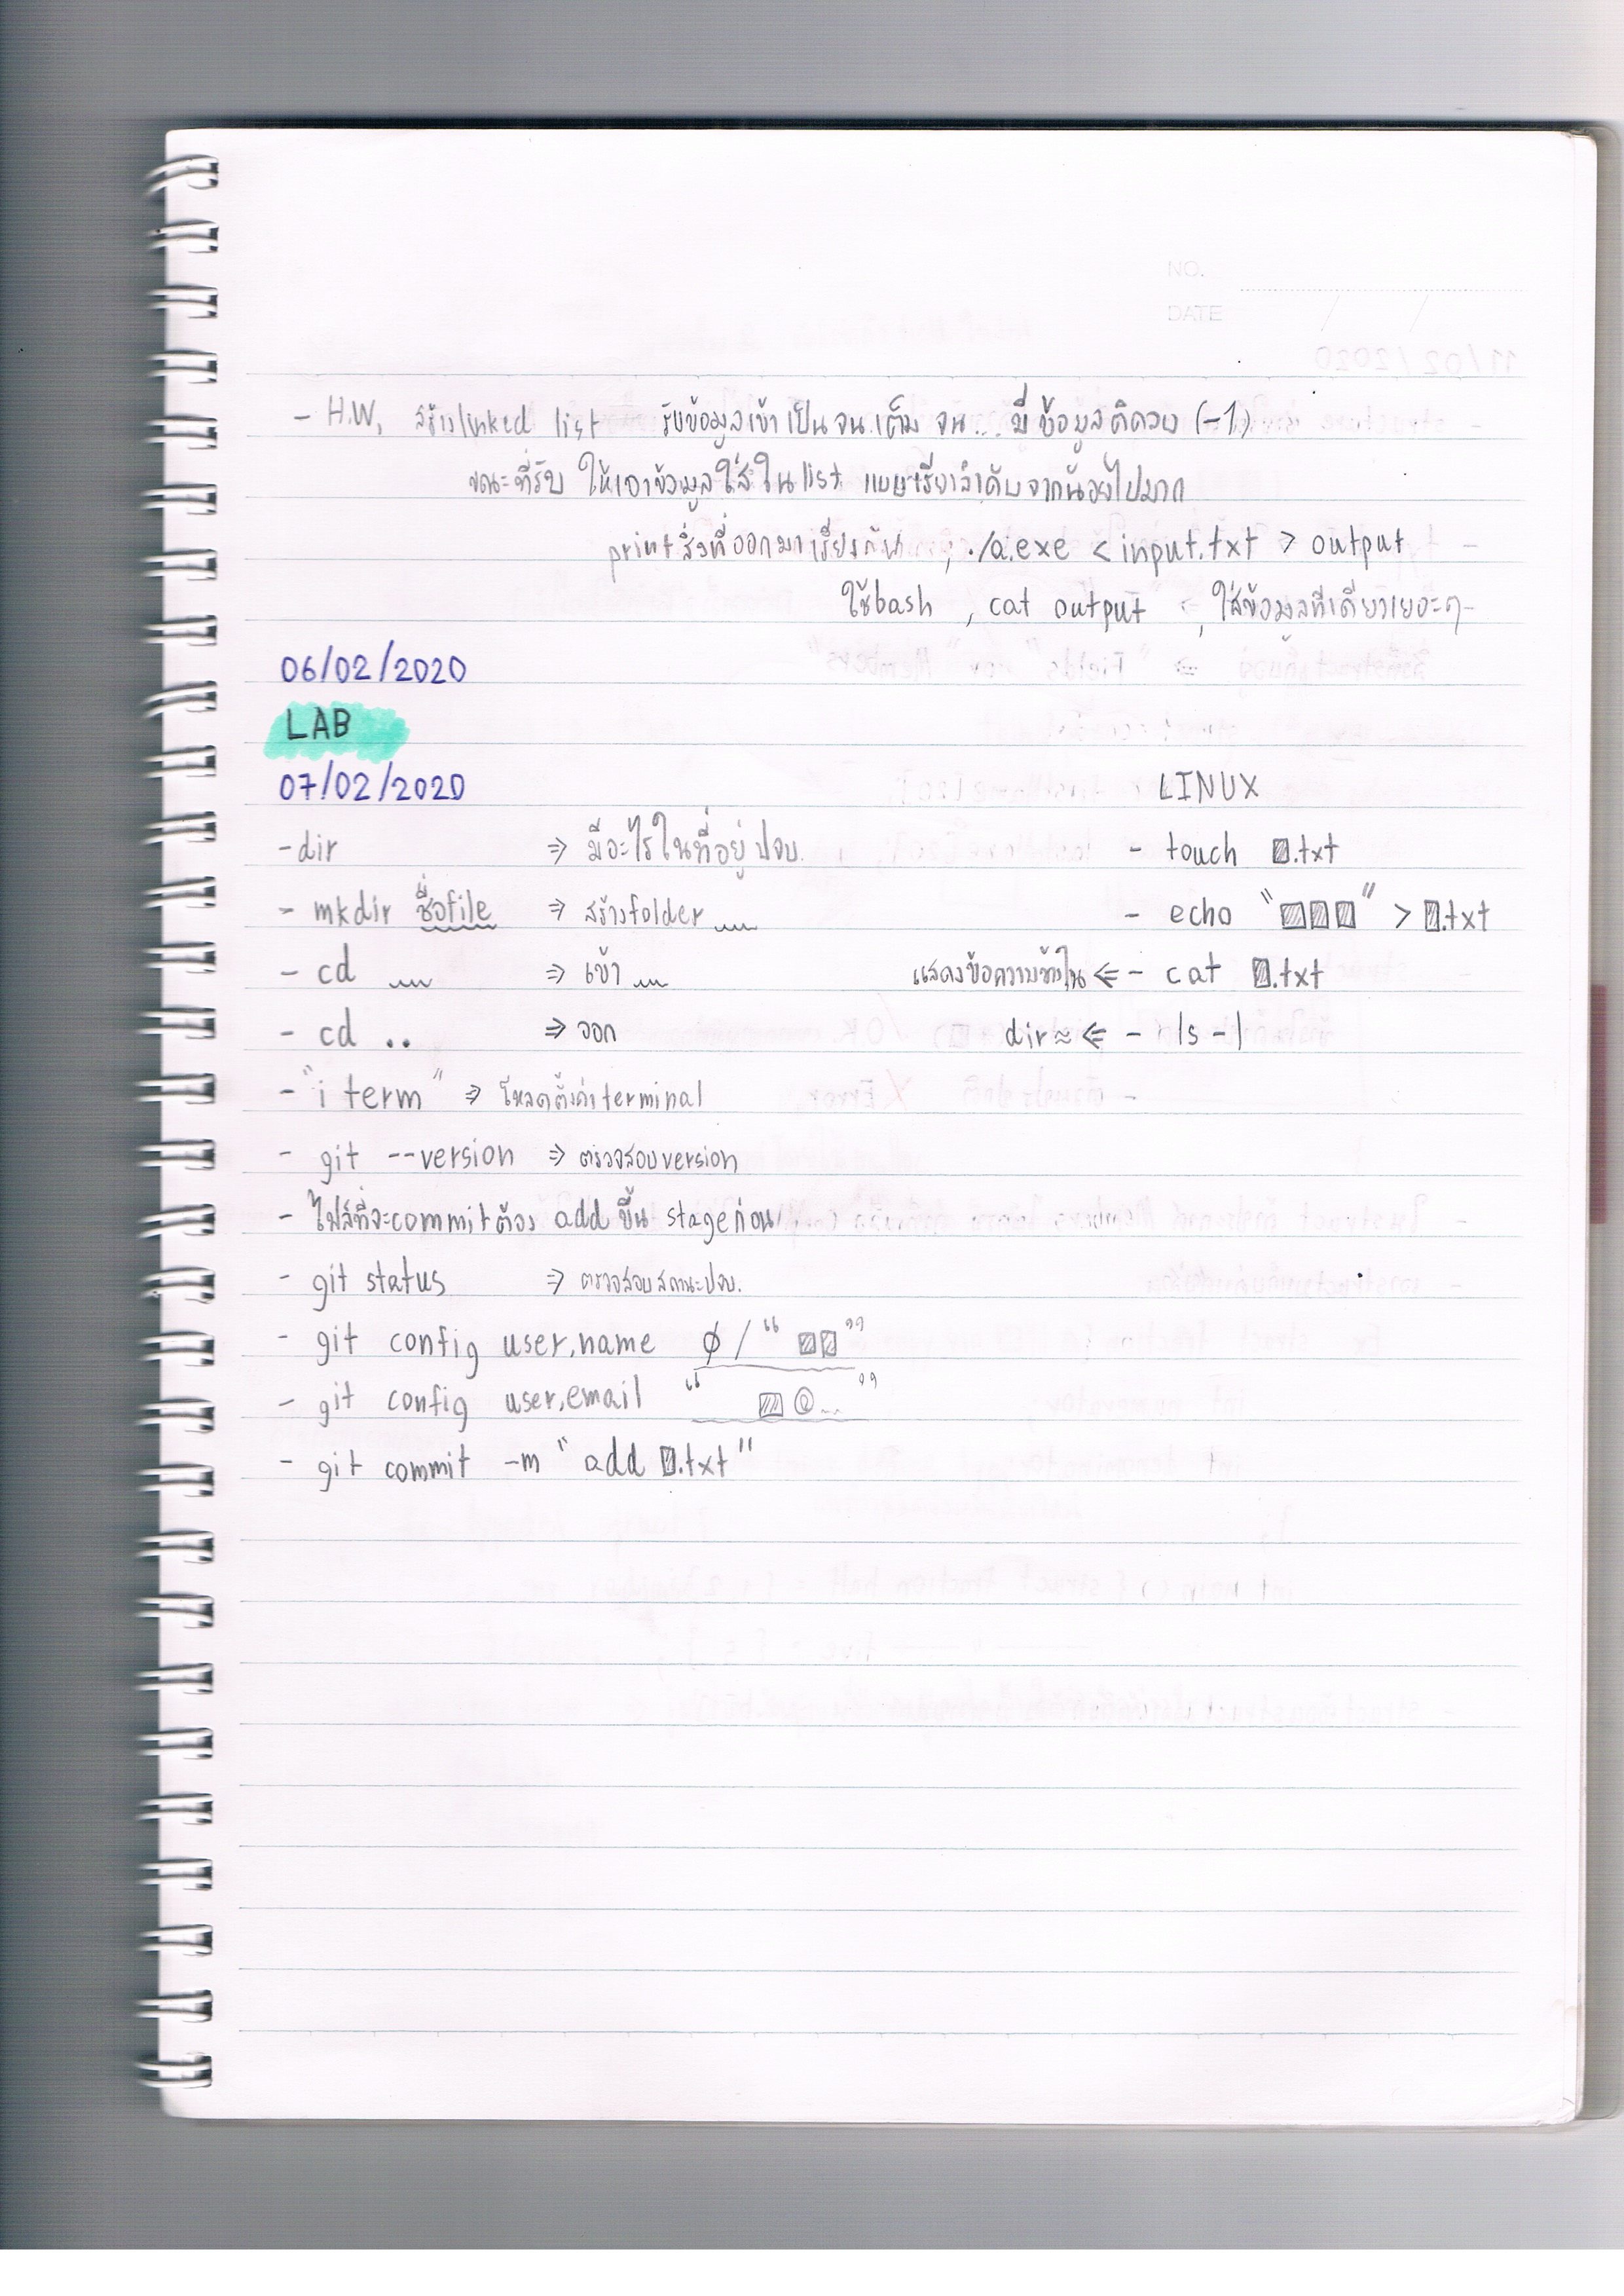 NO.
DATE / /
- H.W, สร้าง linked list รับข้อมูลเข้าเป็น จน.เต็ม จน... มีข้อมูลติดลบ (-1)
ขณะที่รับ ให้เอาข้อมูลใส่ใน list แบบเรียงลำดับจากน้อยไปมาก
print สิ่งที่ออกมาเรียงกัน , ./a.exe < input.txt > output
ใช้ bash , cat output , ใส่ข้อมูลทีเดียวเยอะๆ
06/02/2020
LAB
07/02/2020 LINUX
- dir ⇒ มีอะไรในที่อยู่ ปจบ. - touch ▨.txt
- mkdir ชื่อfile ⇒ สร้าง folder - echo "▨▨▨" > ▨.txt
- cd ⇒ เข้า แสดงข้อความข้างใน ⇐ - cat ▨.txt
- cd .. ⇒ ออก dir ≈ ⇐ - ls -l
- "i term" ⇒ โหลดตั้งค่า terminal
- git --version ⇒ ตรวจสอบ version
- ไฟล์ที่จะ commit ต้อง add ขึ้น stage ก่อน
- git status ⇒ ตรวจสอบสถานะปจบ.
- git config user.name ø / "▨▨"
- git config user.email "▨@..."
- git commit -m "add ▨.txt"